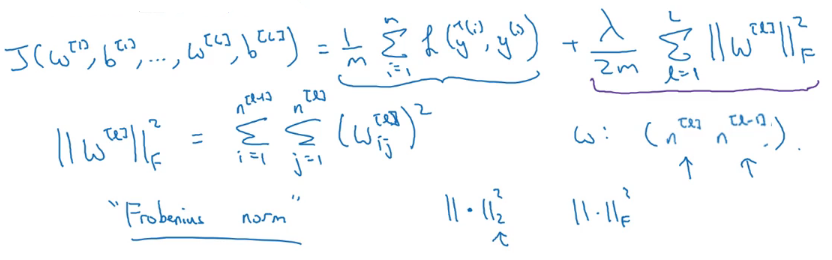 J(w^[1], b^[1], ..., w^[L], b^[L]) = 1/m ∑_{i=1}^{n} L(ŷ^(i), y^(i)) + λ/2m ∑_{l=1}^{L} ||w^[l]||_F^2
||w^[l]||_F^2 = ∑_{i=1}^{n^[l-1]} ∑_{j=1}^{n^[l]} (w_ij^[l])^2 w: (n^[l] n^[l-1]).
"Frobenius norm" ||·||_2^2 ||·||_F^2